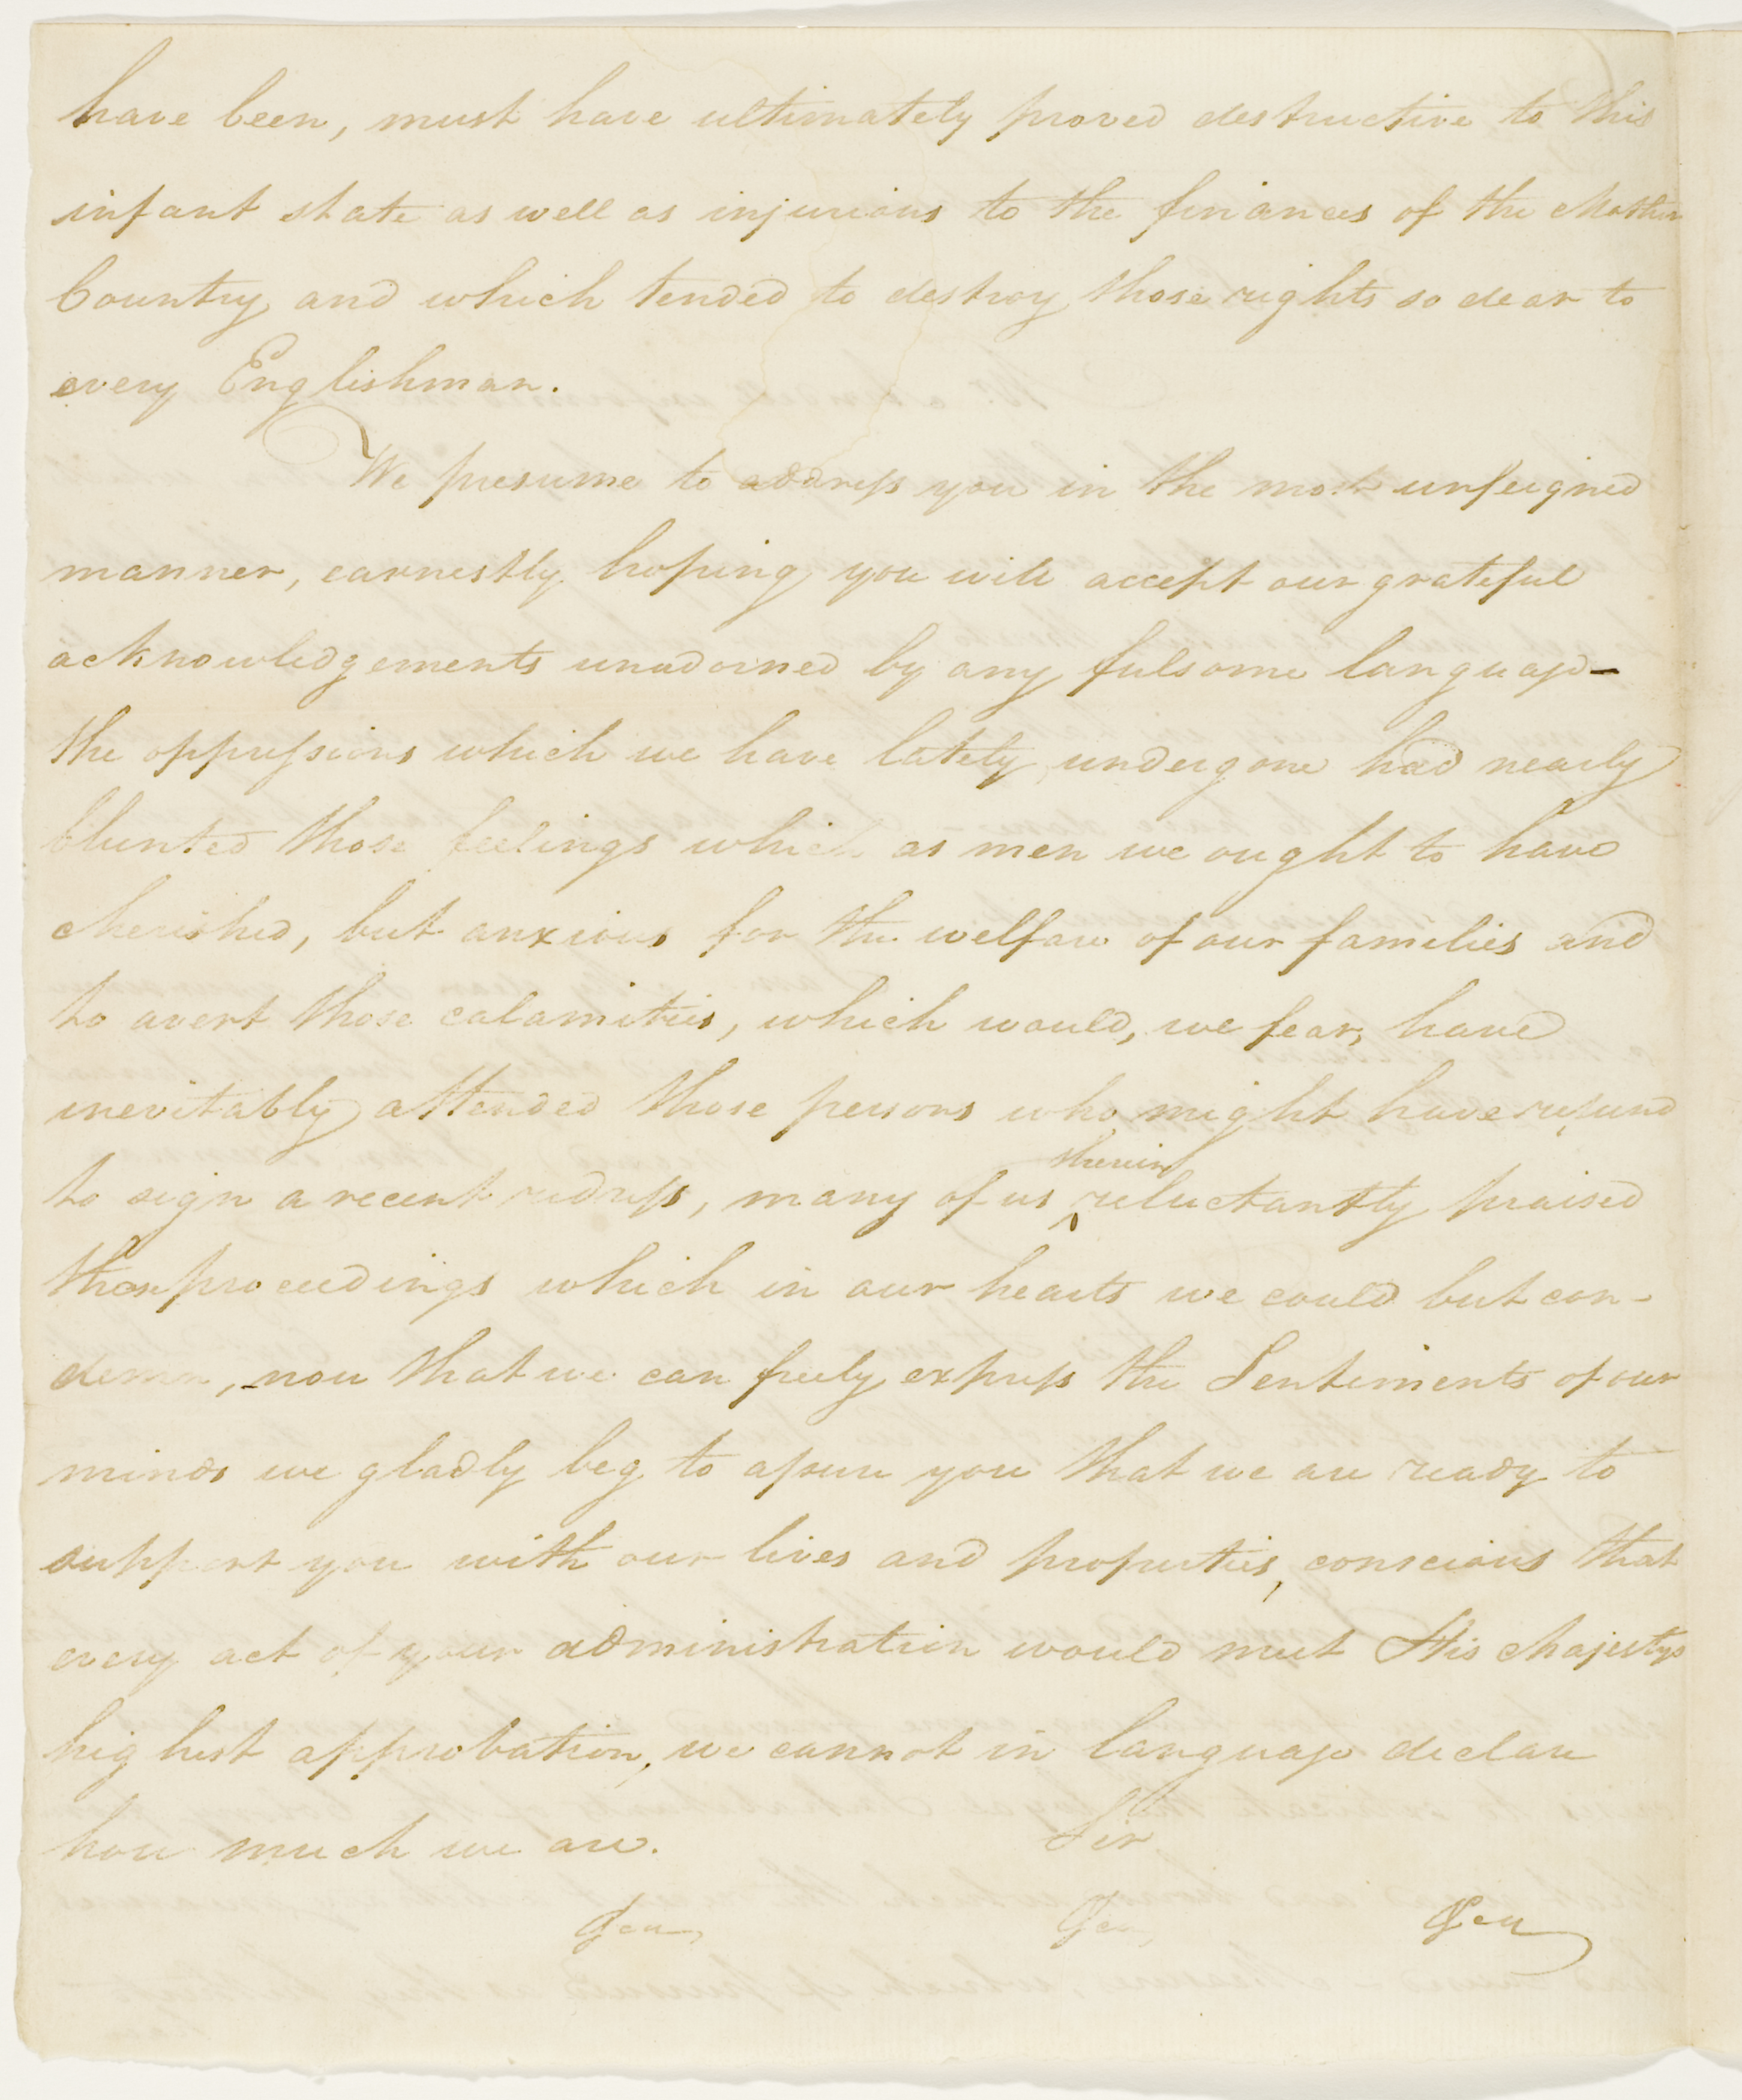 have been, must have ultimately proved destructive to this
infant state as well as injurious to the finances of the Mother
Country and which tended to destroy those rights so dear to
every Englishman.
We presume to address you in the most unfeigned
manner, earnestly hoping you will accept our grateful
acknowledgements unadorned by any fulsome language –
the oppressions which we have lately undergone had nearly
blunted those feelings which as men we ought to have
cherished, but anxious for the welfare of our families and
to avert those calamities, which would, we fear, have
inevitably attended those persons who might have refused
therein
to sign a recent redress, many of us ^ reluctantly praised
those proceedings which in our hearts we could but con-
demn, now that we can freely express the Sentiments of our
minds we gladly beg to assure you that we are ready to
support you with our lives and properties, conscious that
every act of your administration would meet His Majestys
highest approbation, we cannot in language declare
how much we are. Sir
&ca, &ca, &ca